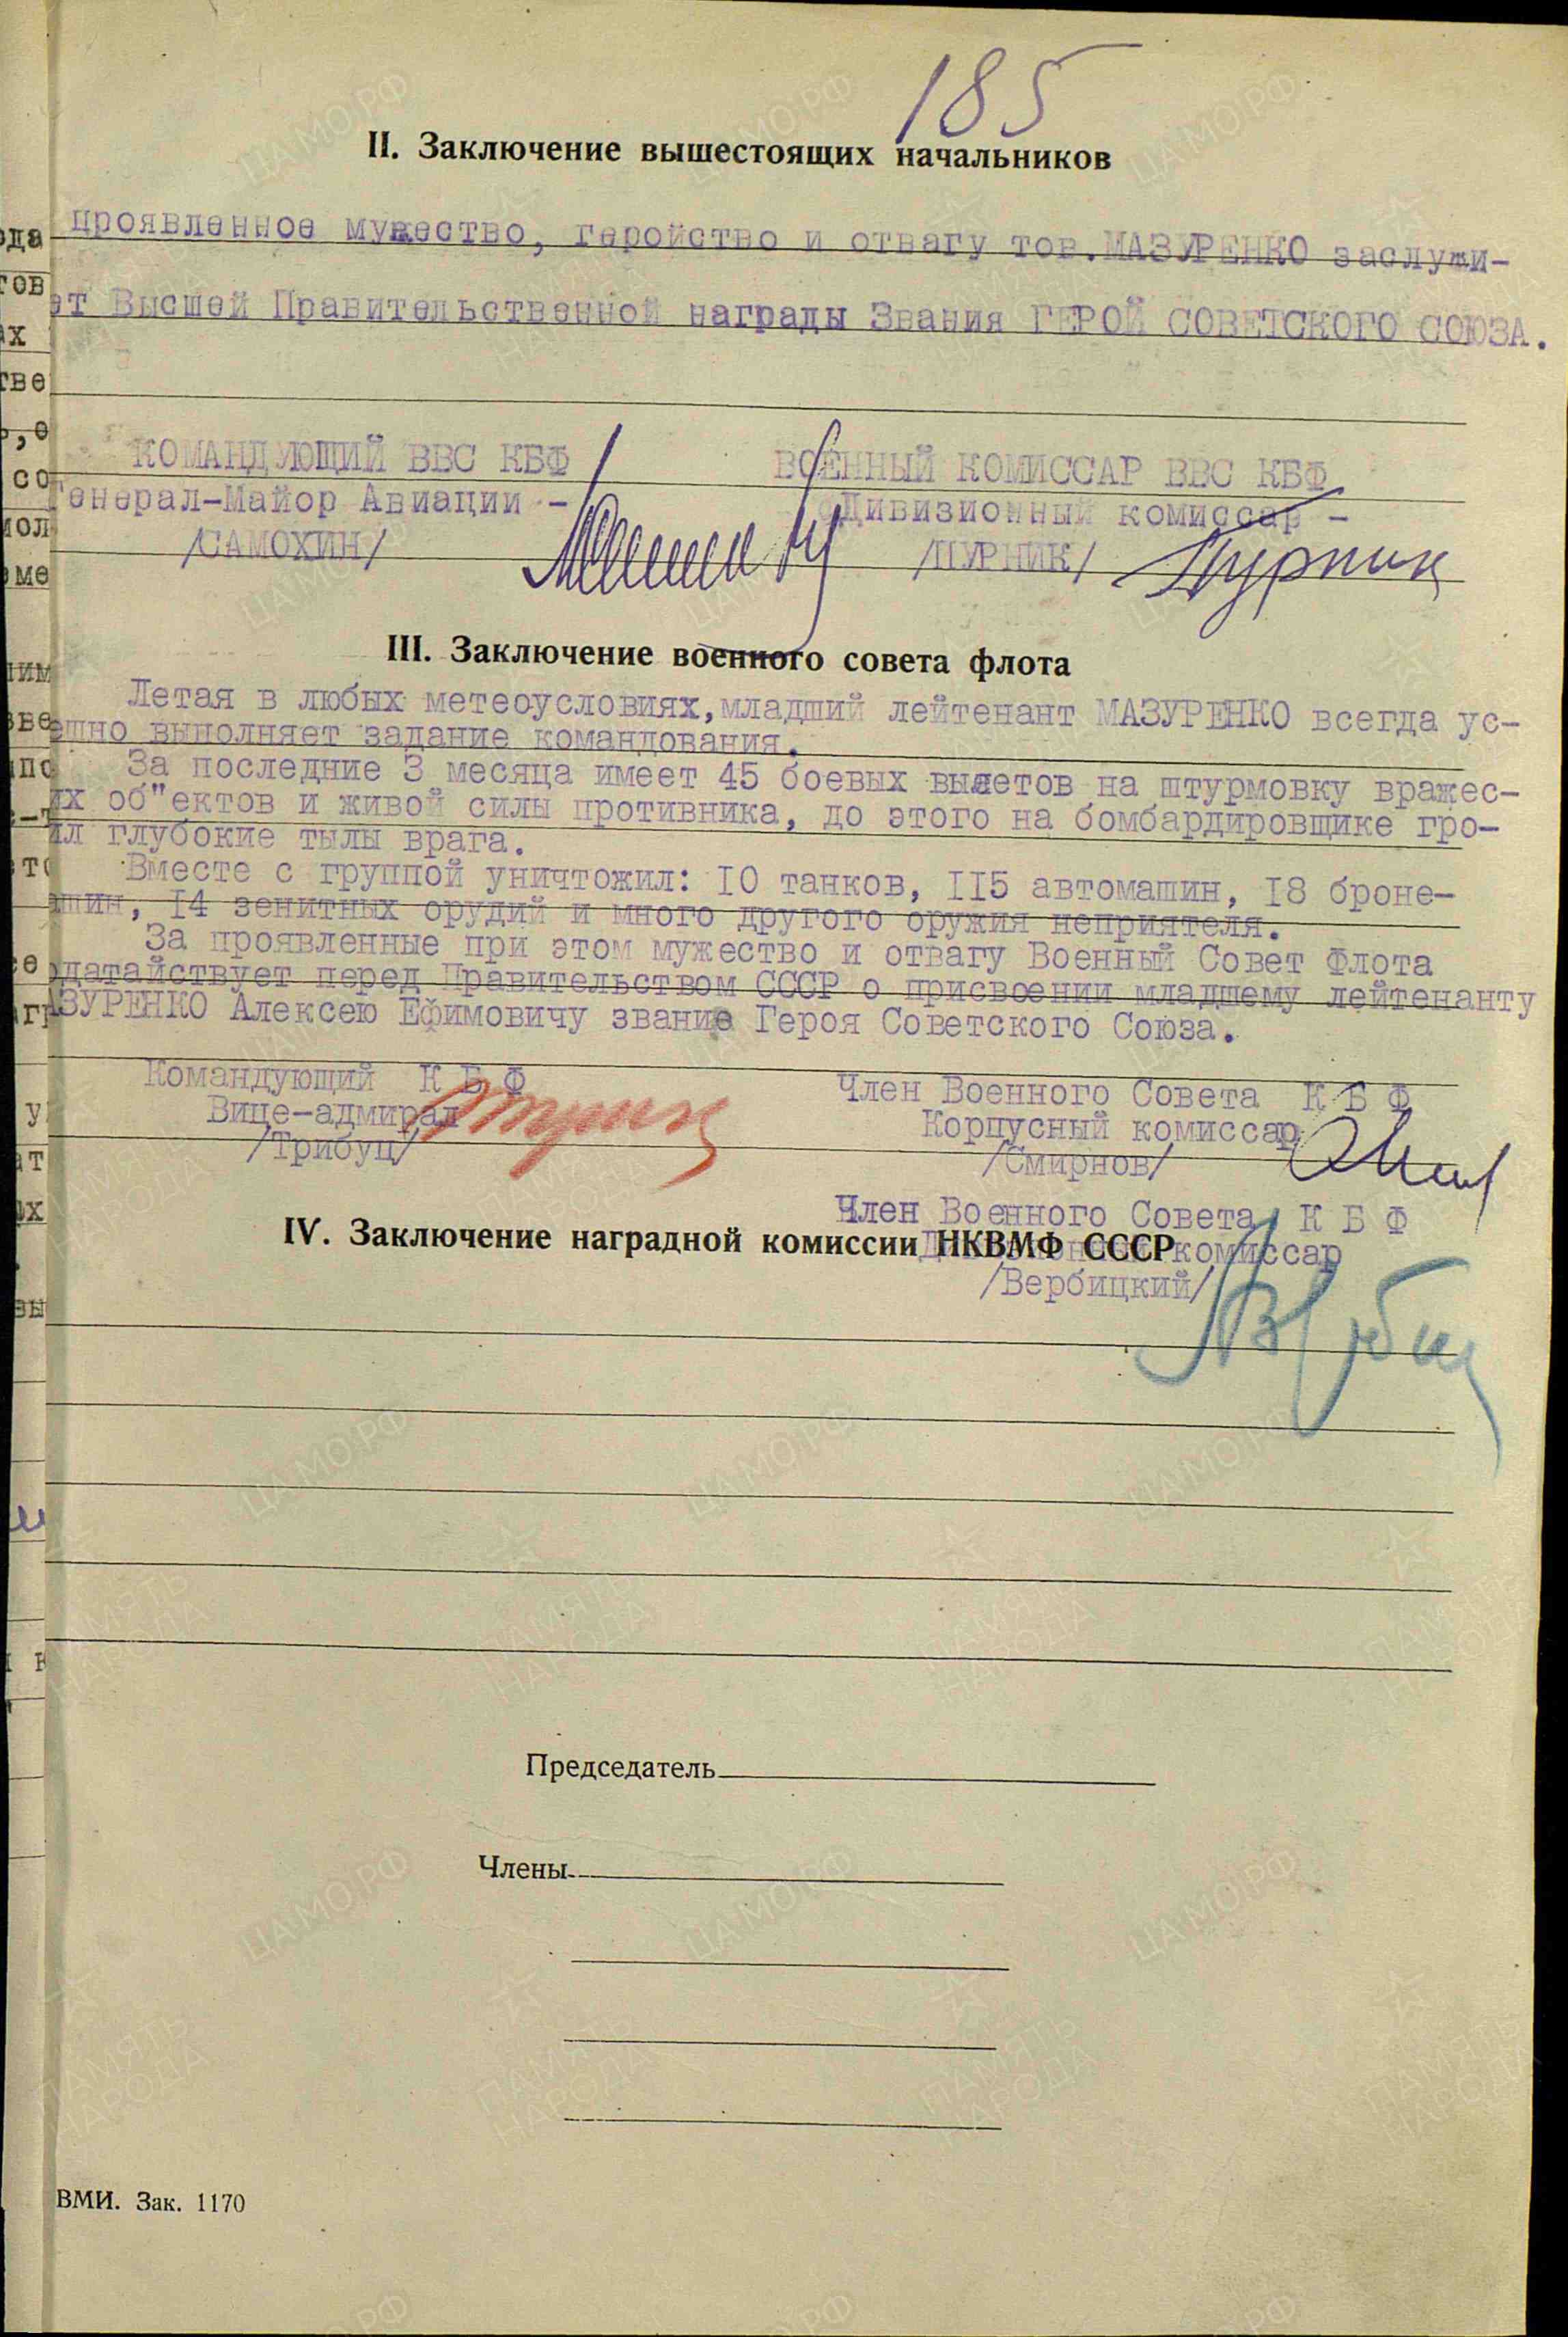 185
II. Заключение вышестоящих начальников
проявленное мужество, геройство и отвагу тов.МАЗУРЕНКО заслужи-
ет Высшей Правительственной награды Звания ГЕРОЙ СОВЕТСКОГО СОЮЗА.
КОМАНДУЮЩИЙ ВВС КБФ ВОЕННЫЙ КОМИССАР ВВС КБФ
Генерал-Майор Авиации - Дивизионный комиссар -
/САМОХИН/ /ПУРНИК/ Пурник
III. Заключение военного совета флота
Летая в любых метеоусловиях,младший лейтенант МАЗУРЕНКО всегда ус-
ешно выполняет задание командования.
За последние 3 месяца имеет 45 боевых вылетов на штурмовку вражес-
их об"ектов и живой силы противника, до этого на бомбардировщике гро-
ил глубокие тылы врага.
Вместе с группой уничтожил: I0 танков, II5 автомашин, I8 броне-
ашин, I4 зенитных орудий и много другого оружия неприятеля.
За проявленные при этом мужество и отвагу Военный Совет Флота
одатайствует перед Правительством СССР о присвоении младшему лейтенанту
АЗУРЕНКО Алексею Ефимовичу звание Героя Советского Союза.
Командующий К Б Ф Член Военного Совета К Б Ф
Вице-адмирал Корпусный комиссар
/Трибуц/ /Смирнов/
Член Военного Совета К Б Ф
IV. Заключение наградной комиссии НКВМФ СССР
Дивизионный комиссар
/Вербицкий/
Председатель
Члены
ВМИ. Зак. 1170